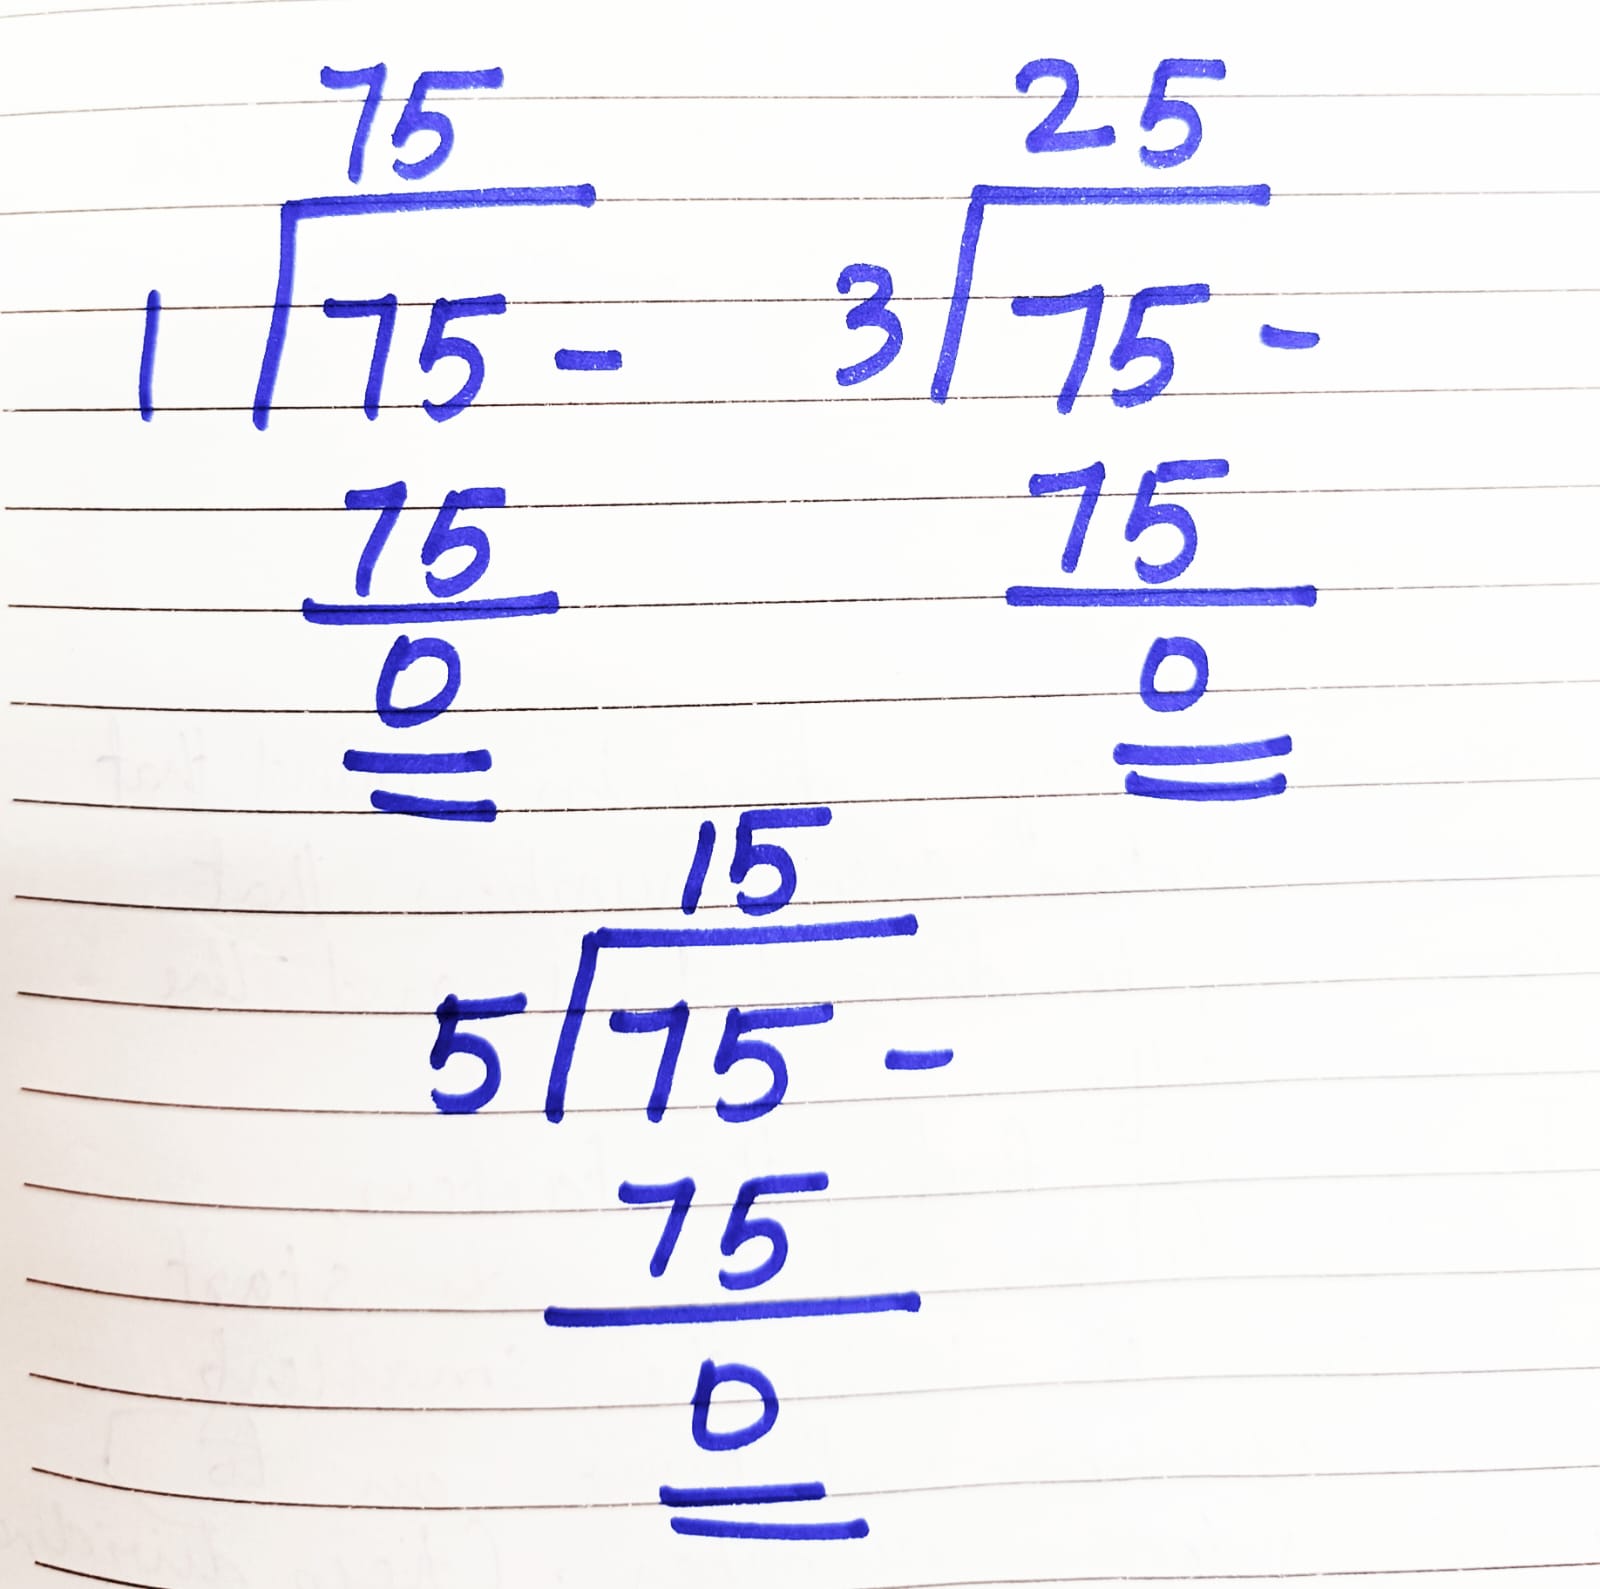 75
1 75 -
75
0
25
3 75 -
75
0
15
5 75 -
75
0